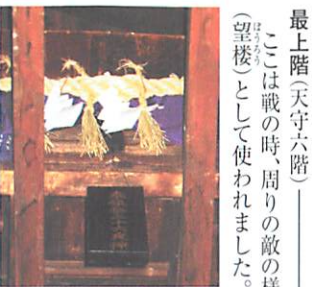 最上階(天守六階)
ここは戦の時、周りの敵の様
(望楼)として使われました。
ぼうろう